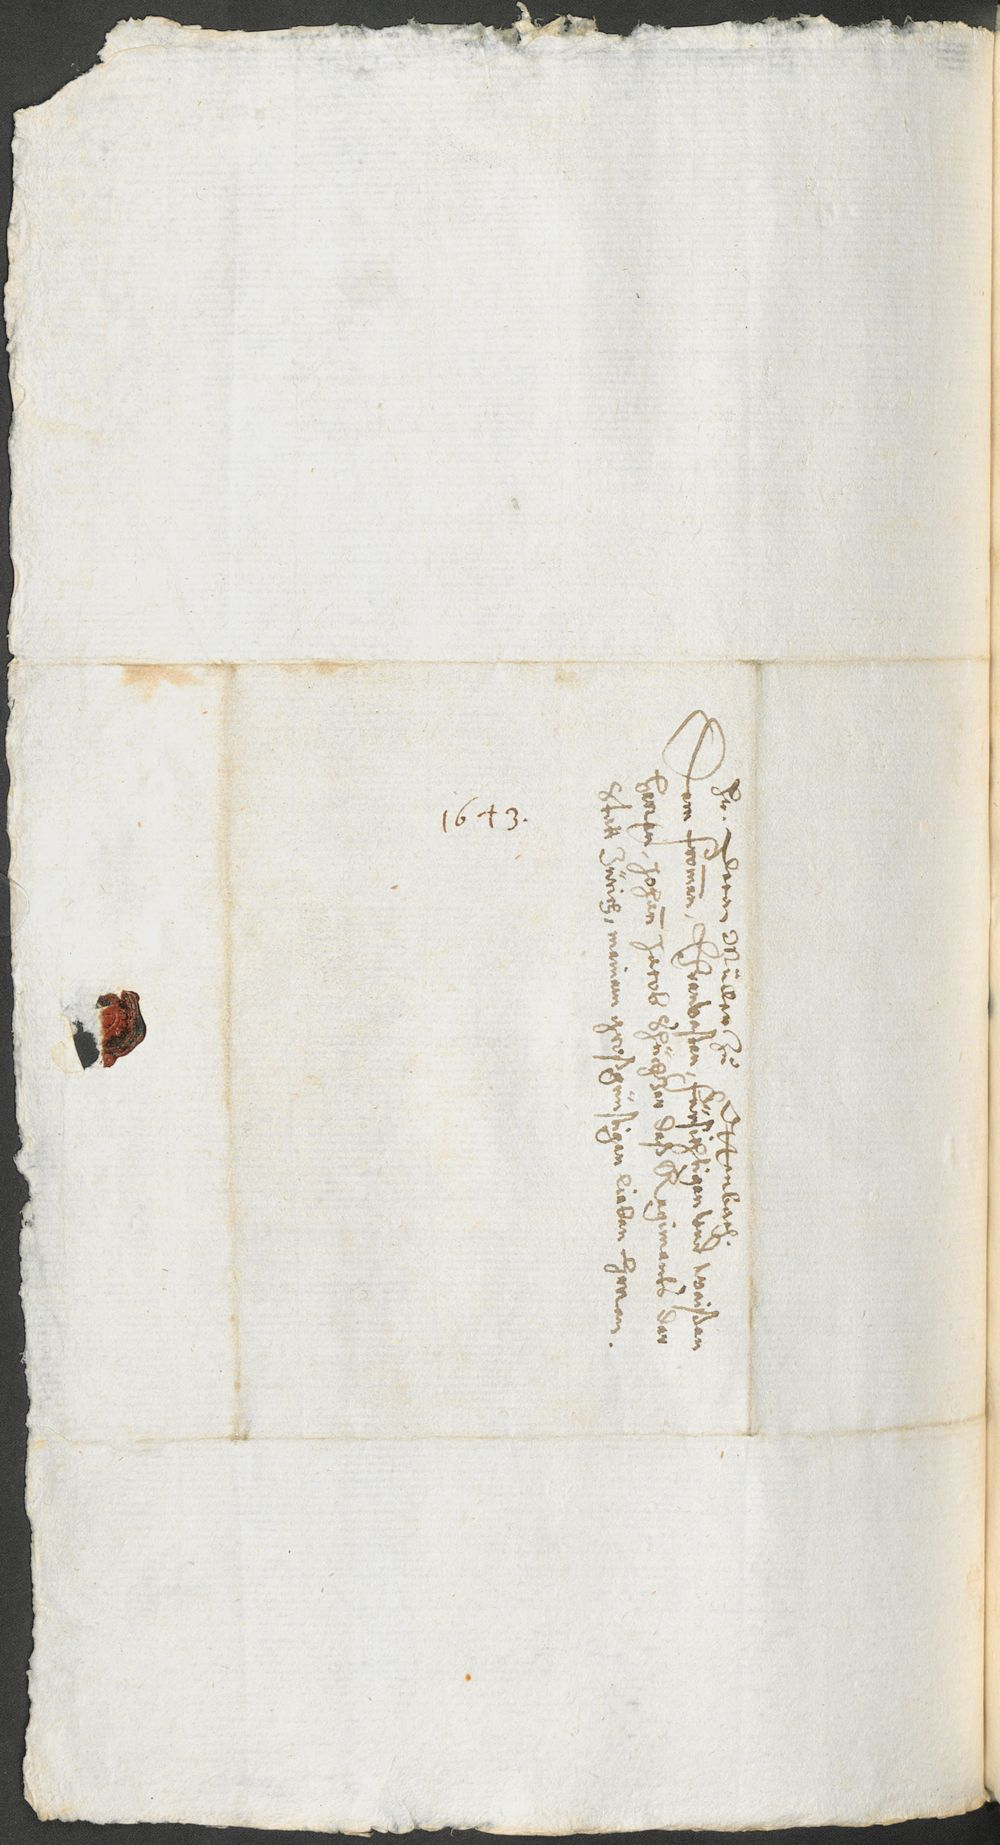 Hr. Pfarer Müller zu Ottenbach.
Dem fromen, Ehrenvesten, fürsichtigen und weißen
Herren, Johan Jacob Schüchzer deß Regiments der
Statt Zürich, meinem großgünstigen lieben Herren.
1643.